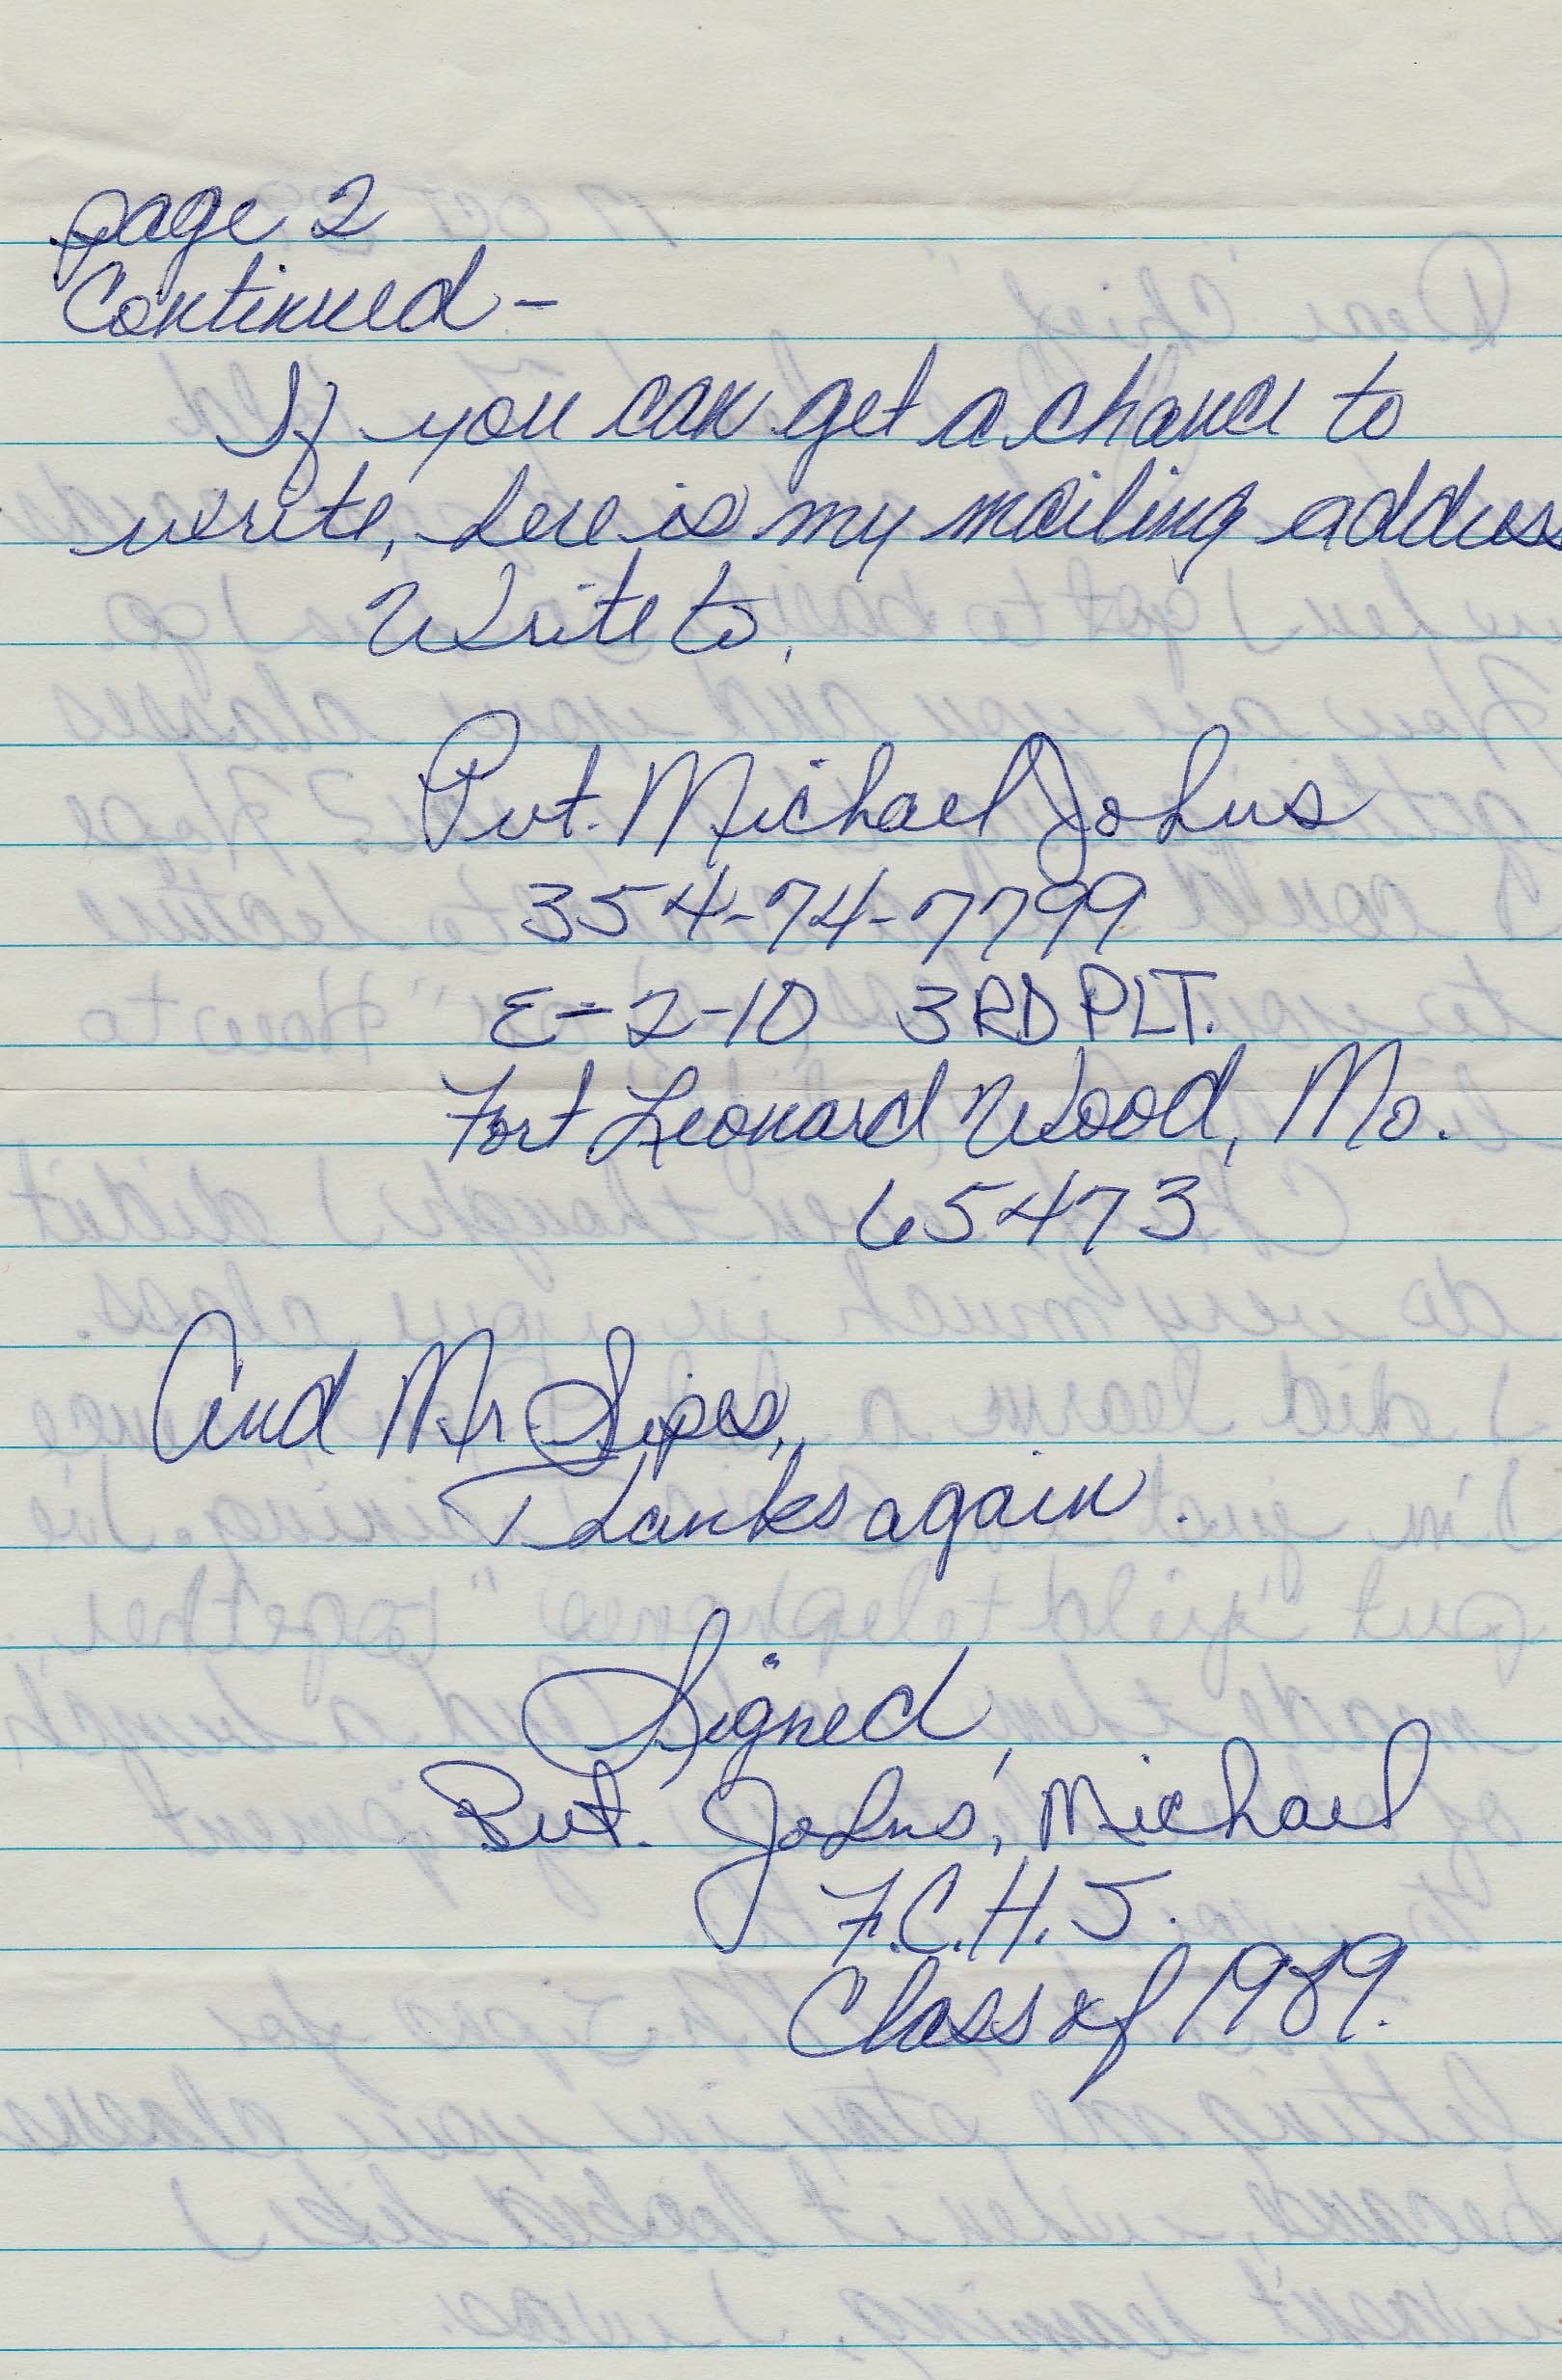 page 2
Continued -
If you can get a chance to
write, here is my mailing address
Write to,
Pvt. Michael Johns
354-74-7799
E-2-10 3RD PLT.
Fort Leonard Wood, Mo.
65473
And Mr Sipes,
Thanks again.
Signed,
Pvt. Johns, Michael
F.C.H.S.
Class of 1989.